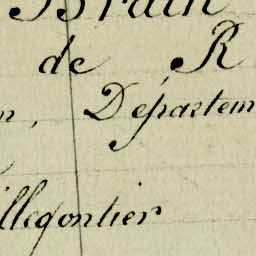 Brain
de R
, Départem
illegontier